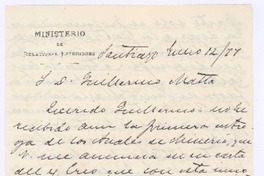 MINISTERIO
DE
RELACIONES EXTERIORES
Santiago Enero 12/77
S. D. Guillermo Matta
Querido Guillermo: no he
recibido aun la primera entre
ga de los Anales de Mineria, que
V. me anuncia en su carta
del 4. Creo que con esta